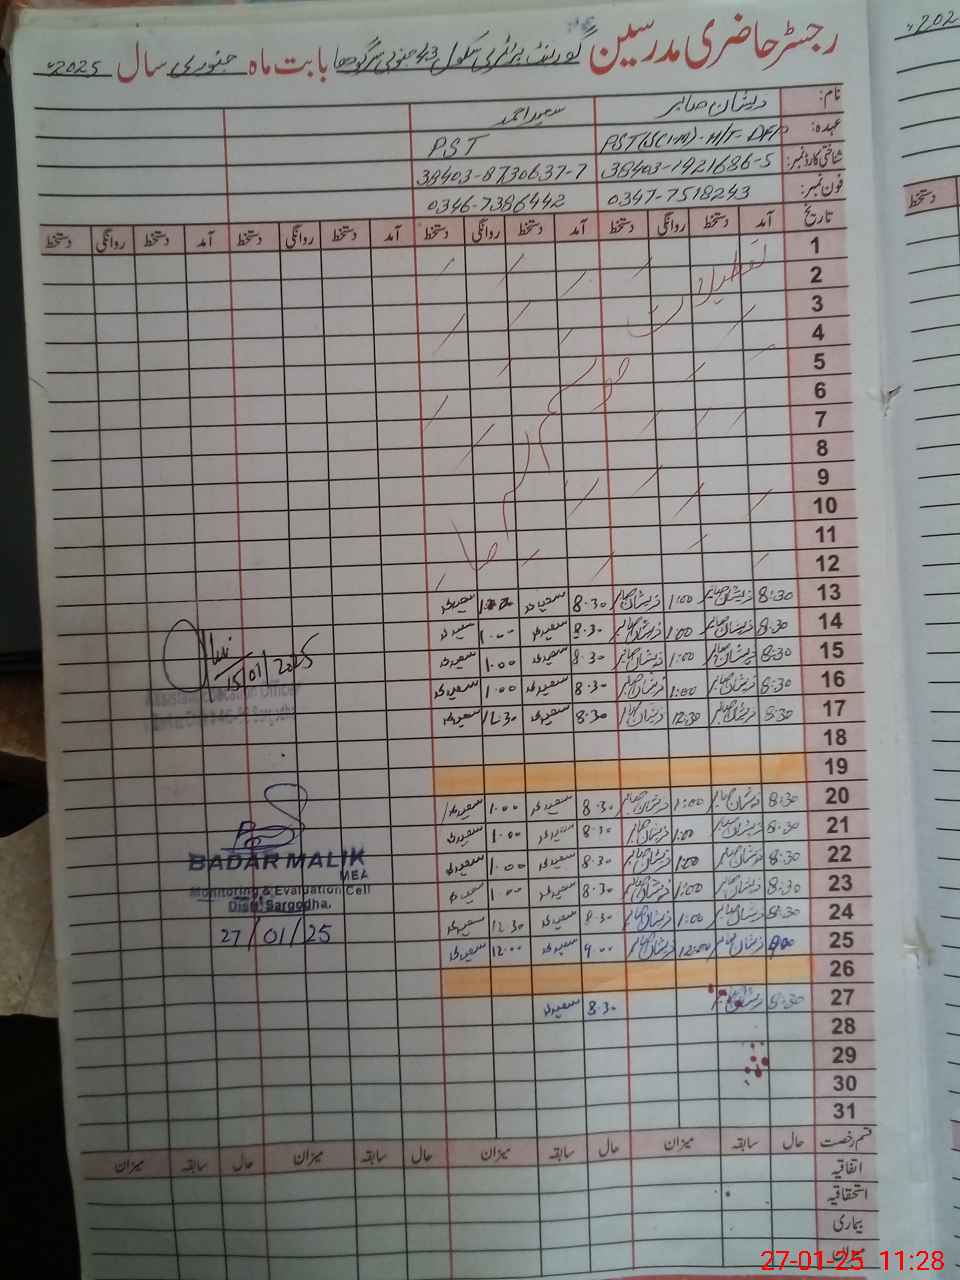 رجسٹر حاضری مدرسین گورنمنٹ پرائمری سکول 43 جنوبی سرگودھا بابت ماہ جنوری سال 2025ء
نام: ذیشان صابر سعید احمد
عہدہ: PST
شناختی کارڈ نمبر: 38403-1921686-5 38403-8730637-7
فون نمبر: 0347-7518243 0346-7386442
تاریخ آمد دستخط روانگی دستخط آمد دستخط روانگی دستخط آمد دستخط روانگی دستخط آمد دستخط روانگی دستخط
1
2
3
4
5
6
7
8
9
10
11
12
تعطیلات
موسم
سرما
13 8:30 ذیشان صابر 1:00 ذیشان صابر 8.30 سعید احمد 1.00 سعید احمد
14 8:30 ذیشان صابر 1:00 ذیشان صابر 8.30 سعید احمد 1.00 سعید احمد
15 8:30 ذیشان صابر 1:00 ذیشان صابر 8.30 سعید احمد 1.00 سعید احمد
16 8:30 ذیشان صابر 1:00 ذیشان صابر 8.30 سعید احمد 1.00 سعید احمد
17 8:30 ذیشان صابر 12:30 ذیشان صابر 8.30 سعید احمد 12.30 سعید احمد
18
19
20 8:30 ذیشان صابر 1:00 ذیشان صابر 8.30 سعید احمد 1.00 سعید احمد
21 8:30 ذیشان صابر 1:00 ذیشان صابر 8.30 سعید احمد 1.00 سعید احمد
22 8:30 ذیشان صابر 1:00 ذیشان صابر 8.30 سعید احمد 1.00 سعید احمد
23 8:30 ذیشان صابر 1:00 ذیشان صابر 8.30 سعید احمد 1.00 سعید احمد
24 8:30 ذیشان صابر 1:00 ذیشان صابر 8.30 سعید احمد 12.30 سعید احمد
25 9:00 ذیشان صابر 12:00 ذیشان صابر 9.00 سعید احمد 12.00 سعید احمد
26
27 8:30 ذیشان صابر 8.30 سعید احمد
28
29
30
31
15/01/2025
Assistant Education Officer
BADAR MALIK
MEA
Monitoring & Evaluation Cell
Distt. Sargodha.
27/01/25
قسم رخصت حال سابقہ میزان حال سابقہ میزان حال سابقہ میزان حال سابقہ میزان
اتفاقیہ
استحقاقیہ
بیماری
میزان
2025ء
دستخط
27-01-25 11:28